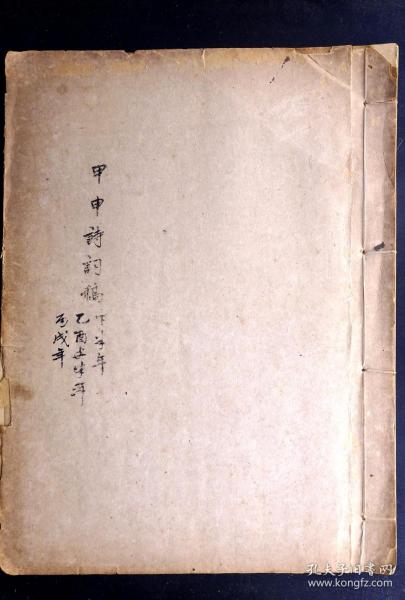 甲申詩詞稿下半年
乙酉上半年
丙戌年
孔夫子旧书网
www.kongfz.com